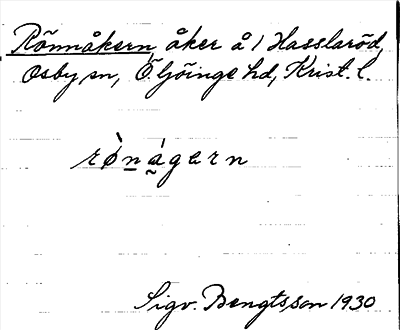 Rönnåkern, åker å 1 Hasslaröd,
Osby sn, Ö. Göinge hd, Krist. l.
rò̀n̲ágern
Sigv. Bengtsson 1930